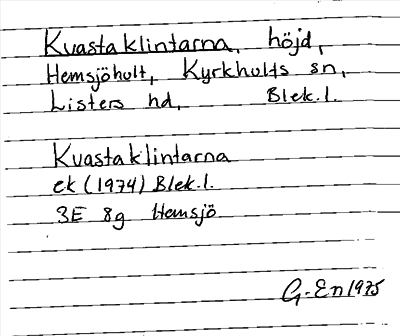 Kvastaklintarna, höjd,
Hemsjöhult, Kyrkhults sn,
Listers hd, Blek.l.
Kvastaklintarna
ek (1974) Blek.l.
3E 8g Hemsjö
G. En 1975